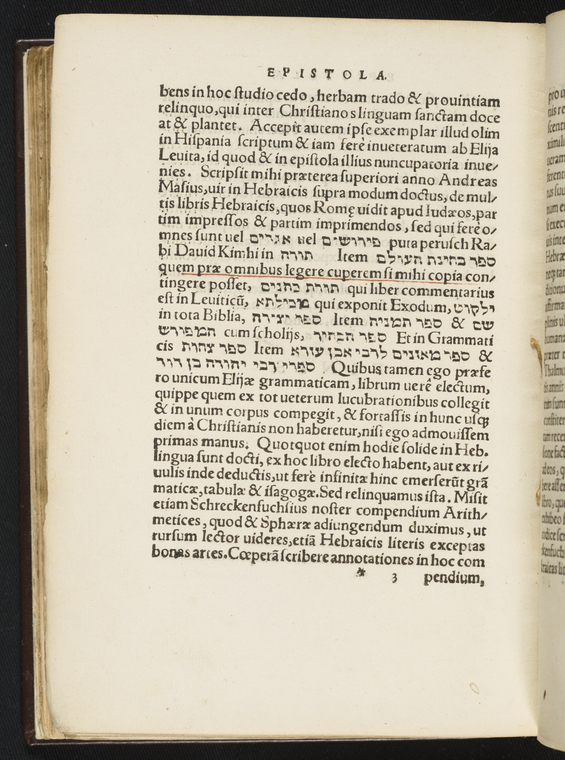 EPISTOLA.
bens in hoc studio cedo, herbam trado & prouintiam
relinquo, qui inter Christianos linguam sanctam doce
at & plantet. Accepit autem ipse exemplar illud olim
in Hispania scriptum & iam ferè inueteratum ab Elija
Leuita, id quod & in epistola illius nuncupatoria inue-
nies. Scripsit mihi præterea superiori anno Andreas
Masius, uir in Hebraicis supra modum doctus, de mul-
tis libris Hebraicis, quos Romę uidit apud Iudæos, par
tim impressos & partim imprimendos, sed qui ferè o-
mnes sunt uel אגרים uel פירושים puta perusch Ra-
bi Dauid Kimhi in תורה Item ספר בחינת העולם
quem præ omnibus legere cuperem si mihi copia con-
tingere posset, תורת כהנים qui liber commentarius
est in Leuiticũ, מכילתא qui exponit Exodum, ילקוט
in tota Biblia, ספר יצירה Item ספר התמונה & שם
המפורש cum scholijs, ספר הבהיר Et in Grammati
cis ספר צחות Item ספר מאזנים לרבי אבן עזרא &
ספרי רבי יהודה בן דויד Quibus tamen ego præfe
ro unicum Elijæ grammaticam, librum uerè electum,
quippe quem ex tot ueterum lucubrationibus collegit
& in unum corpus compegit, & fortassis in hunc usq;
diem à Christianis non haberetur, nisi ego admouissem
primas manus. Quotquot enim hodie solide in Heb.
lingua sunt docti, ex hoc libro electo habent, aut ex ri-
uulis inde deductis, ut ferè infinitæ hinc emerserũt grã
maticæ, tabulæ & isagogæ. Sed relinquamus ista. Misit
etiam Schreckenfuchsius noster compendium Arith-
metices, quod & Sphæræ adiungendum duximus, ut
rursum lector uideres, etiã Hebraicis literis exceptas
bonas artes. Cœperã scribere annotationes in hoc com
* 3 pendium,